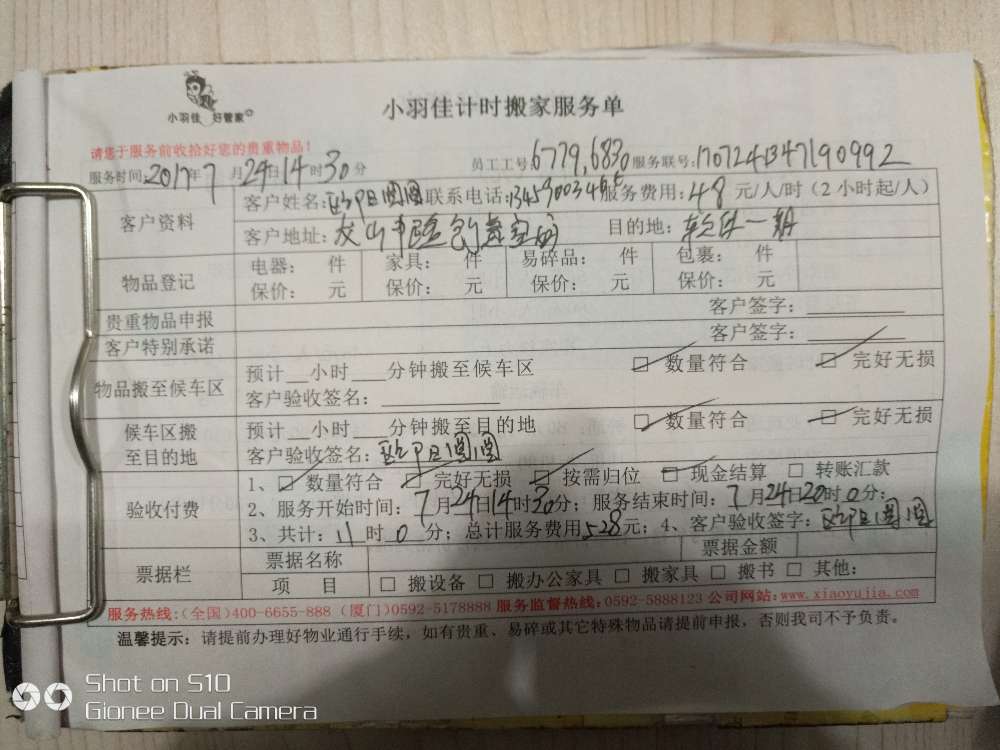 小羽佳 好管家
小羽佳计时搬家服务单
请您于服务前收拾好您的贵重物品!
服务时间:2017年7月24日14时30分 员工工号6779,6830服务联号:1707241347190992
客户资料
客户姓名:欧阳圆圆联系电话: 服务费用:48元/人/时(2小时起/人)
客户地址: 目的地:软件一期
物品登记
电器: 件 家具: 件 易碎品: 件 包裹: 件
保价: 元 保价: 元 保价: 元 保价: 元
贵重物品申报 客户签字:
客户特别承诺 客户签字:
物品搬至候车区
预计__小时___分钟搬至候车区 □数量符合 □完好无损
客户验收签名:
候车区搬至目的地
预计__小时___分钟搬至目的地 □数量符合 □完好无损
客户验收签名:欧阳圆圆
验收付费
1、□数量符合 □完好无损 □按需归位 □现金结算 □转账汇款
2、服务开始时间:7月24日14时30分;服务结束时间:7月24日20时0分;
3、共计:11时0分;总计服务费用528元;4、客户验收签字:欧阳圆圆
票据栏
票据名称 票据金额
项 目 □搬设备 □搬办公家具 □搬家具 □搬书 □其他:
服务热线:(全国)400-6655-888 (厦门)0592-5178888 服务监督热线:0592-5888123 公司网站:www.xiaoyujia.com
温馨提示:请提前办理好物业通行手续,如有贵重、易碎或其它特殊物品请提前申报,否则我司不予负责。
Shot on S10
Gionee Dual Camera